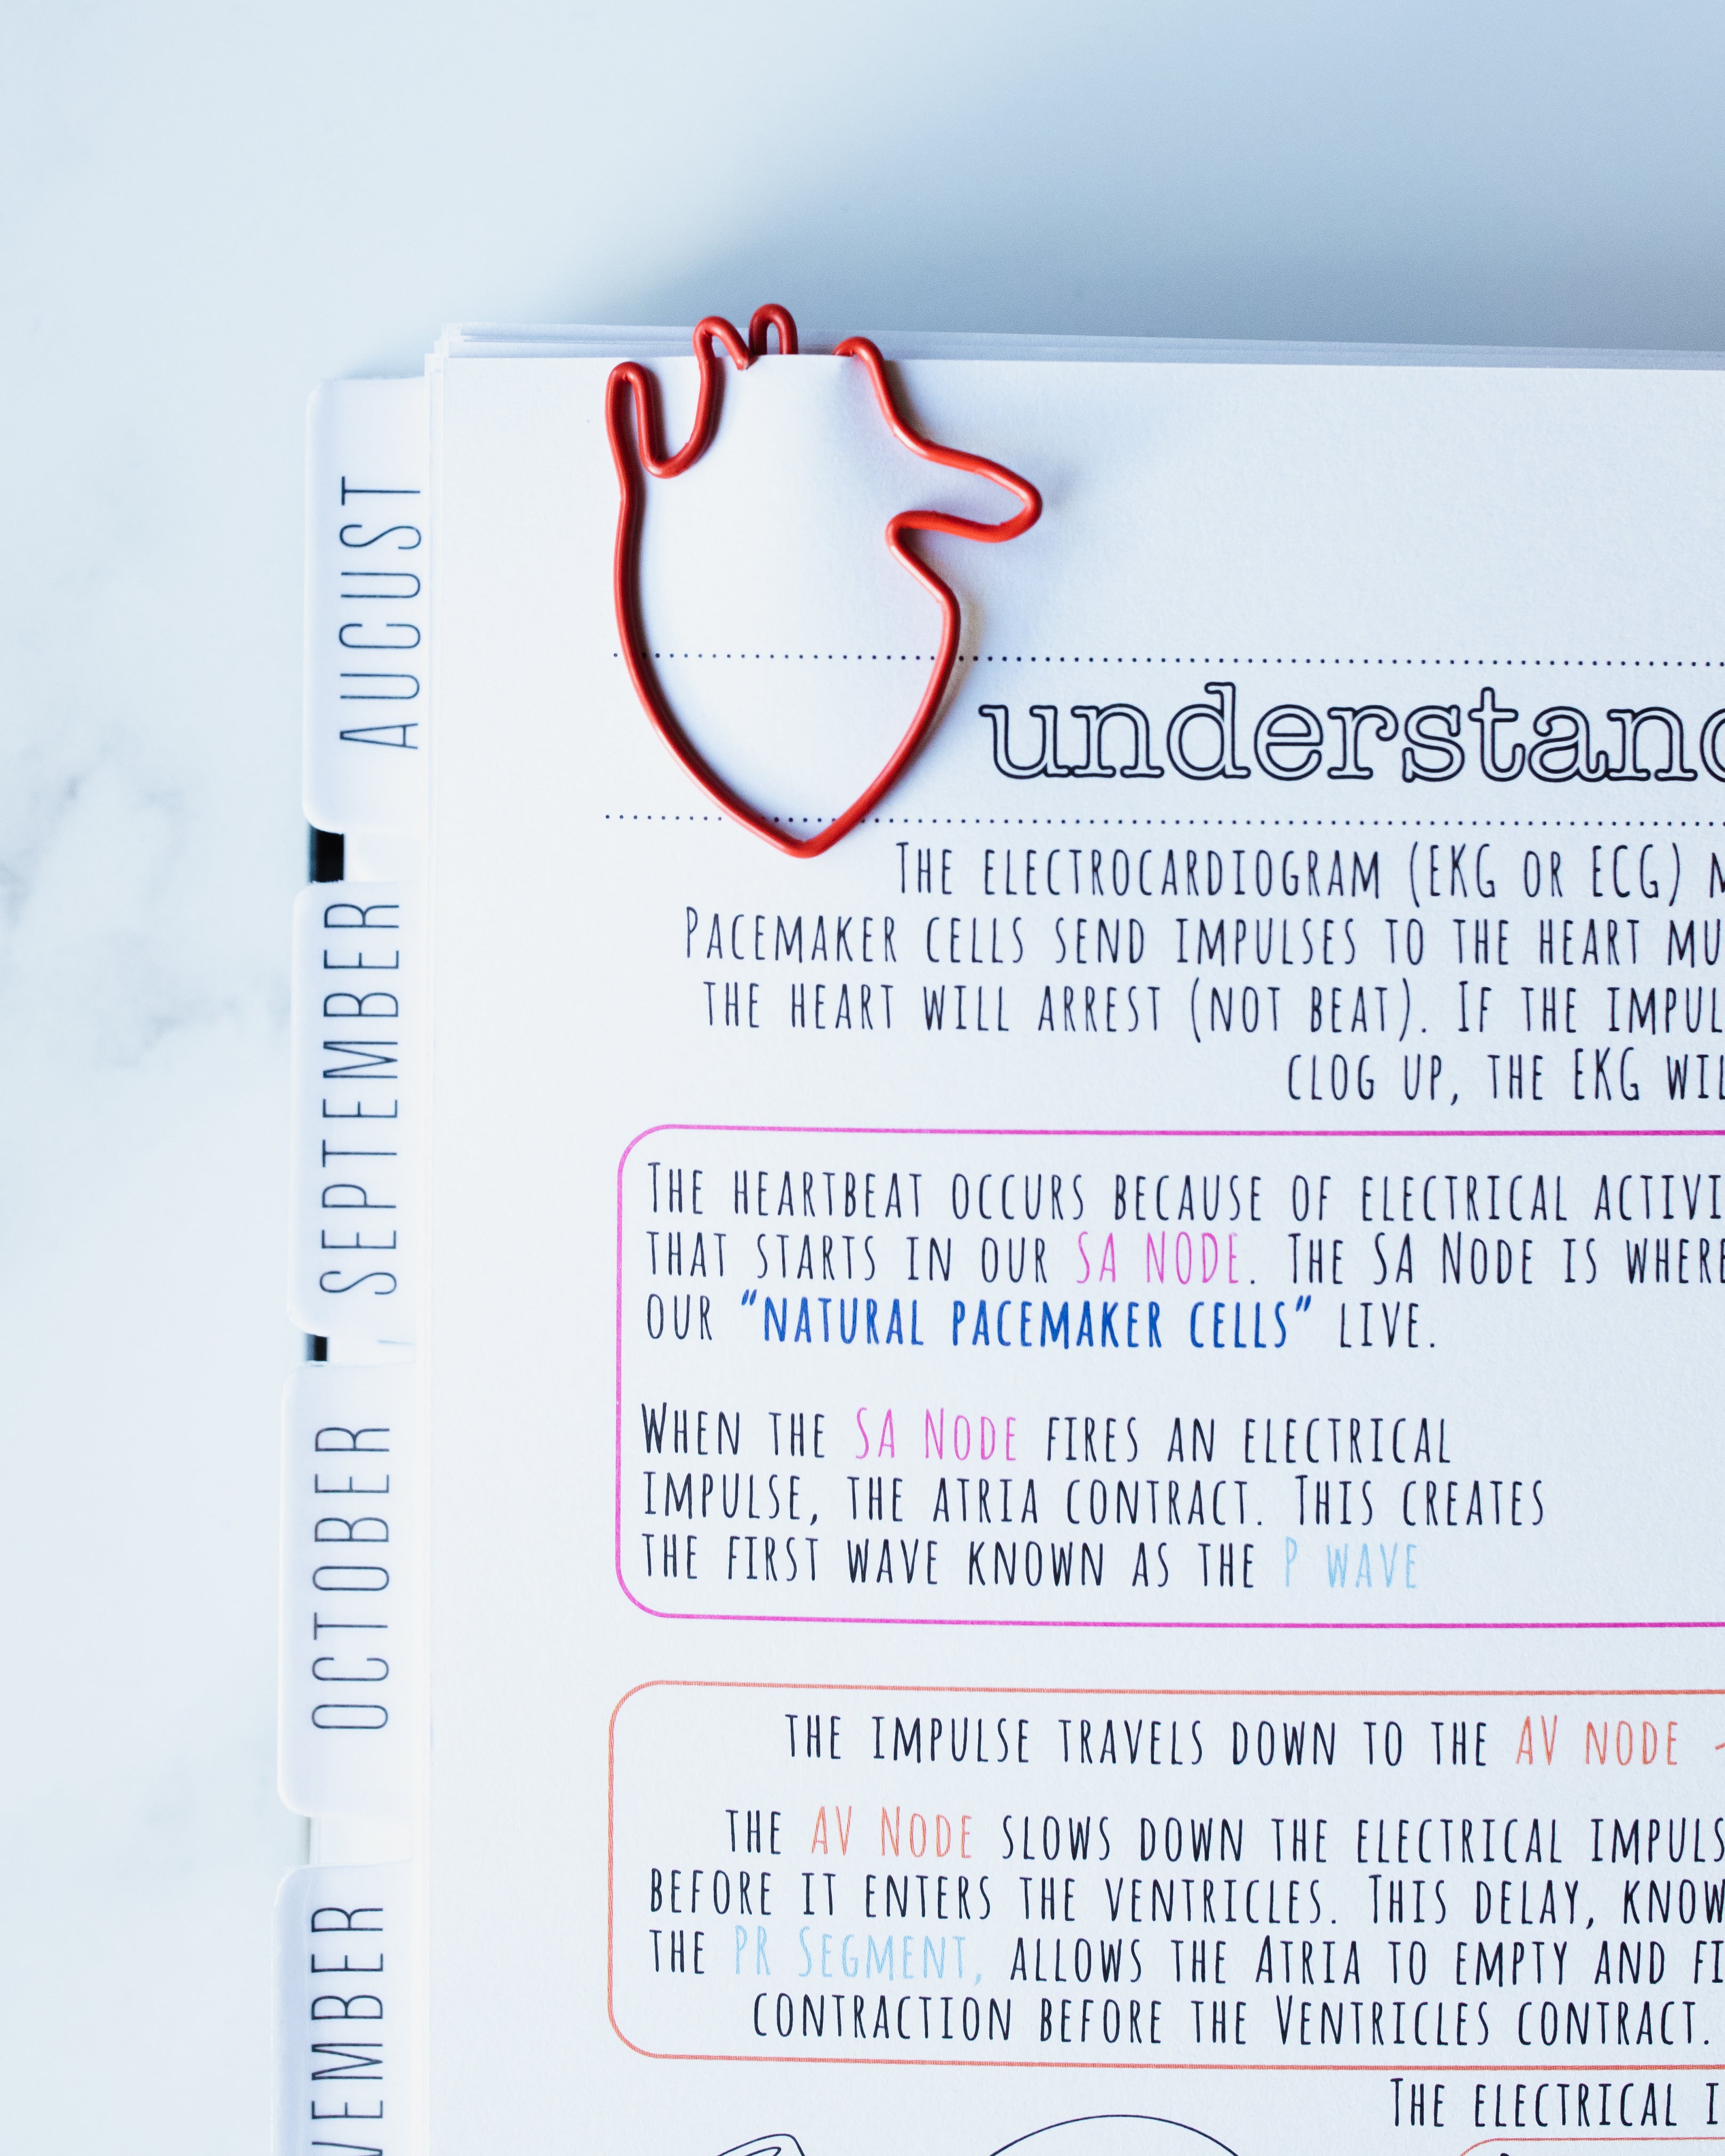 AUGUST
SEPTEMBER
OCTOBER
VEMBER
understand
The electrocardiogram (EKG or ECG) m
Pacemaker cells send impulses to the heart mu
the heart will arrest (not beat). If the impul
clog up, the EKG wil
The heartbeat occurs because of electrical activi
that starts in our SA node. The SA Node is where
our “natural pacemaker cells” live.
When the SA Node fires an electrical
impulse, the atria contract. This creates
the first wave known as the P wave
the impulse travels down to the AV node
the AV Node slows down the electrical impuls
before it enters the ventricles. This delay, know
the PR Segment, allows the Atria to empty and fi
contraction before the Ventricles contract.
The electrical i